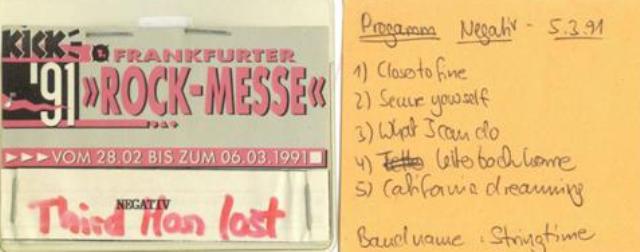 KICK
'91
1. FRANKFURTER
»ROCK-MESSE«
►►►VOM 28.02 BIS ZUM 06.03.1991
NEGATIV
Third Man lost
Progamm Negativ - 5.3.91
1) Close to fine
2) Secure yourself
3) What I can do
4) back home
5) California dreaming
Bandname : Stringtime